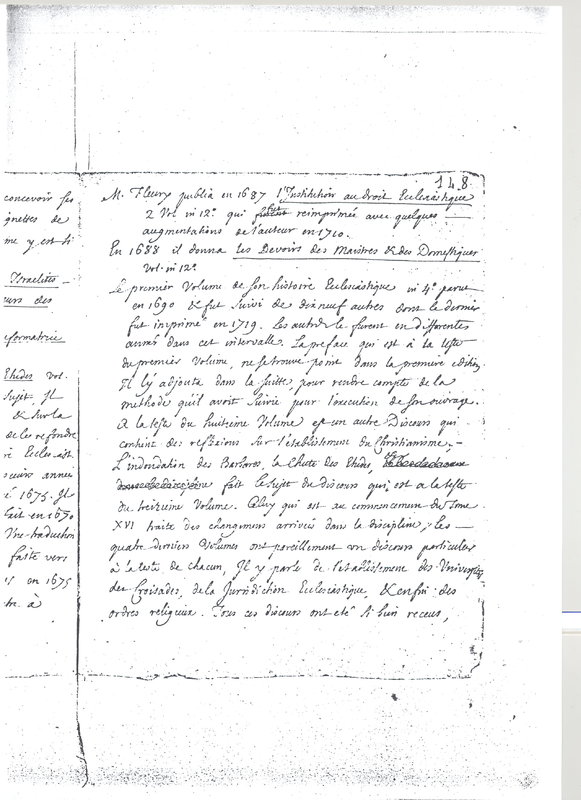 concevoir ses
gnettes de
me y est si
Israelites
urs des
eformatrice
Etudes vol.
Sujet. Il
& sur la
de les refondre
ri Eccles. est
sieurs année
i 1675. Il
fait en 1670
Une traduction
faitte vers
en 1675
tre. à
148
M. Fleury publia en 1687 l'Institution au droit Ecclesiastique
2 Vol in 12°. qui furent reimprimés avec quelques
augmentations de l'auteur en 1710.
En 1688 il donna les Devoirs des Maistres & des Domestiques
Vol. in 12°.
Le premier Volume de son histoire Ecclesiastique in 4°. parut
en 1690 & fut suivi de dixneuf autres dont le dernier
fut imprimé en 1719. Les autres le furent en differentes
années dans cet intervalle. La preface qui est à la teste
du premier Volume, ne se trouve point dans la premiere edition,
Il l'y adjouta dans la suitte, pour rendre compte de la
methode qu'il avoit suivie pour l'execution de son ouvrage.
A la teste du huitieme Volume est un autre Discours qui
contient des reflexions sur l'etablissement du Christianisme.
L'inondation des Barbares, la chute des Etudes,
fait le sujet du discours qui est a la teste
du treizieme Volume. Celuy qui est au commencement du Tome
XVI traite des changemens arrivés dans la discipline, les
quatre derniers Volumes ont pareillement un discours particulier
à la teste de chacun. Il y parle de l'etablissement des Universités,
des Croisades, de la Jurisdiction Ecclesiastique, & enfin des
ordres religieux. Tous ces discours ont eté si bien receus,